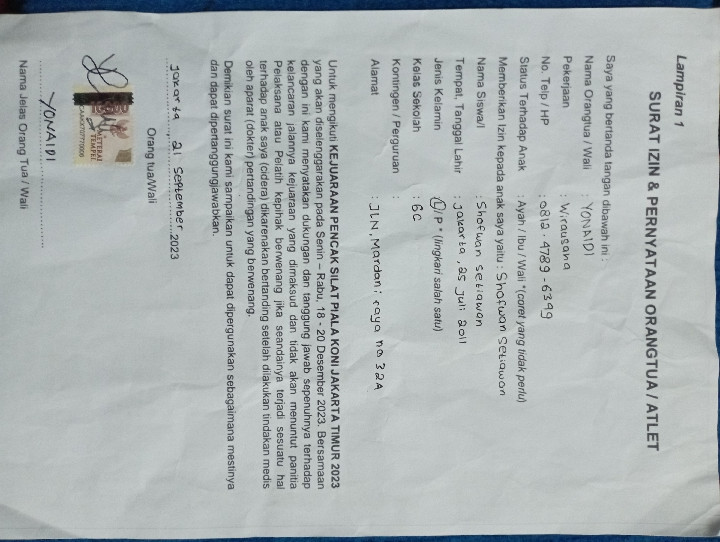 Lampiran 1
SURAT IZIN & PERNYATAAN ORANGTUA / ATLET
Saya yang bertanda tangan dibawah ini :
Nama Orangtua / Wali : YONAIDI
Pekerjaan : Wirausaha
No. Telp / HP : 0812-9789-6399
Status Terhadap Anak : Ayah / Ibu / Wali *(coret yang tidak perlu)
Memberikan Izin kepada anak saya yaitu : Shofwan Setiawan
Nama Siswa/I : Shofwan Setiawan
Tempat, Tanggal Lahir : Jakarta, 25 Juli 2011
Jenis Kelamin : L / P * (lingkari salah satu)
Kelas Sekolah : 6C
Kontingen / Perguruan :
Alamat : JLN. Mardani raya no 32A
Untuk mengikuti KEJUARAAN PENCAK SILAT PIALA KONI JAKARTA TIMUR 2023
yang akan diselenggarakan pada Senin – Rabu, 18 - 20 Desember 2023. Bersamaan
dengan ini kami menyatakan dukungan dan tanggung jawab sepenuhnya terhadap
kelancaran jalannya kejuaraan yang dimaksud dan tidak akan menuntut panitia
Pelaksana atau Pelatih kepihak berwenang jika seandainya terjadi sesuatu hal
terhadap anak saya (cidera) dikarenakan bertanding setelah dilakukan tindakan medis
oleh aparat (dokter) pertandingan yang berwenang.
Demikian surat ini kami sampaikan untuk dapat dipergunakan sebagaimana mestinya
dan dapat dipertanggungjawabkan.
Jakarta, 21 September 2023
Orang tua/Wali
METERAI
TEMPEL
YONAIDI
Nama Jelas Orang Tua / Wali